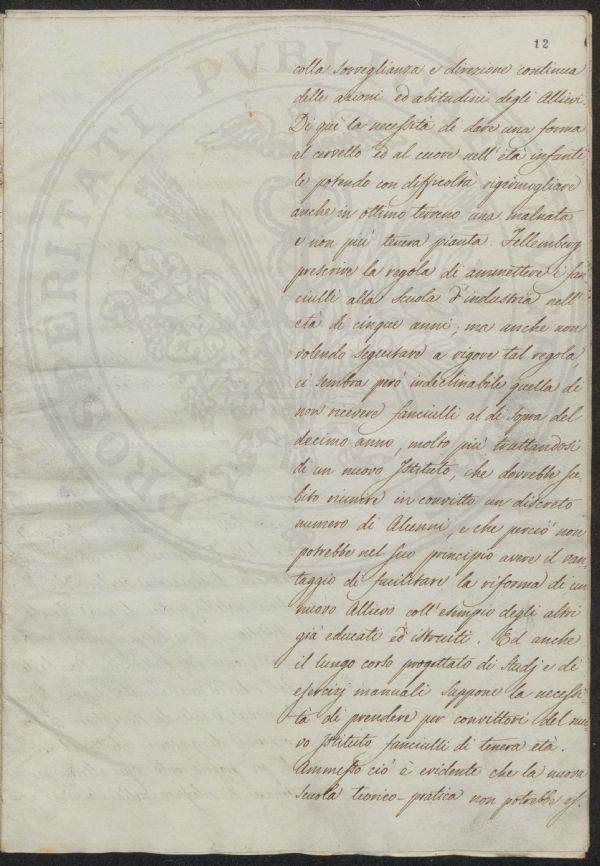 12
colla sorveglianza e direzione continua
delle azioni ed abitudini degli Allievi.
Di quì la necessità di dare una forma
al cervello ed al cuore nell'età infanti
le potendo con difficoltà rigermogliare
anche in ottimo terreno una malnata
e non più tenera pianta. Fellemberg
prescrive la regola di ammettere i fan
ciulli alla Scuola d'industria nell'
età di cinque anni; ma anche non
volendo seguitare a rigore tal regola,
ci sembra però indeclinabile quella di
non ricevere fanciulli al di sopra del
decimo anno, molto più trattandosi
di un nuovo Istituto, che dovrebbe su
bito riunire in convitto un discreto
numero di Alunni, e che perciò non
potrebbe nel suo principio avere il van
taggio di facilitare la riforma di un
nuovo Allievo coll'esempio degli altri
già educati ed istruiti. Ed anche
il lungo corso progettato di Studj e di
esercizj manuali suppone la necessi
tà di prendere per convittori del nuo
vo Istituto fanciulli di tenera età.
Ammesso ciò è evidente che la nuova
Scuola teorico-pratica non potrebbe es.
PROSPERITATI PVBLI